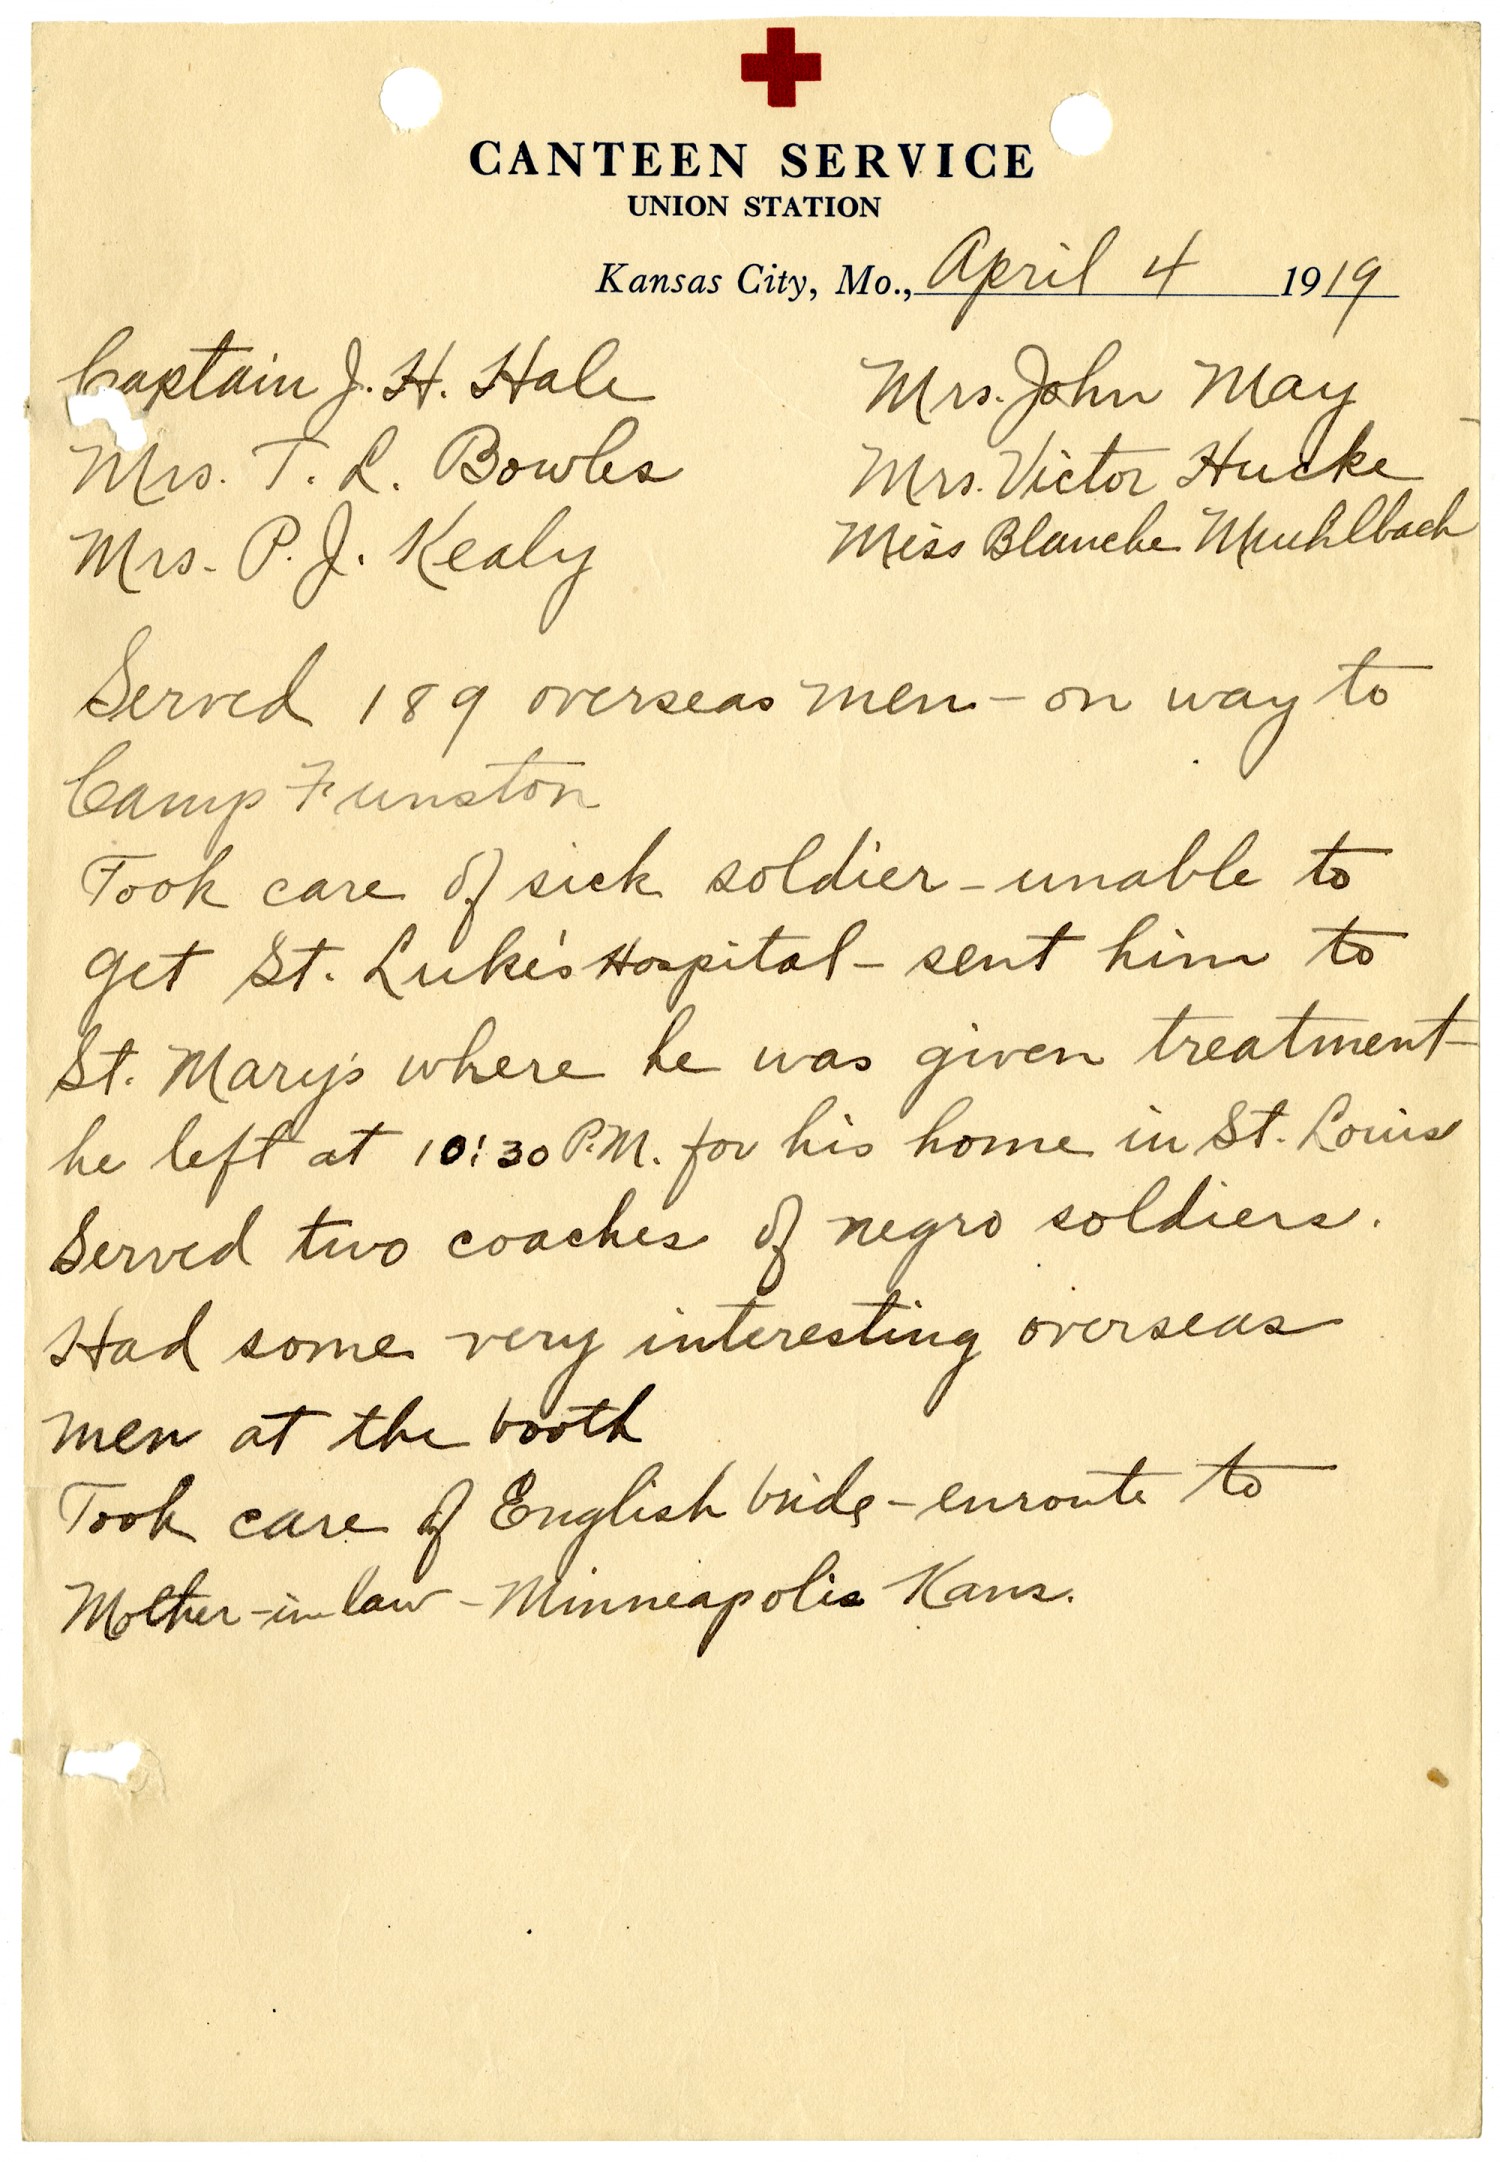 CANTEEN SERVICE
UNION STATION
Kansas City, Mo., April 4 1919
Captain J. H. Hale
Mrs. T. L. Bowles
Mrs. P. J. Kealy
Mrs. John May
Mrs. Victor Hucke
Miss Blanche Muehlbach
Served 189 overseas men - on way to
Camp Funston
Took care of sick soldier - unable to
get St. Luke's Hospital - sent him to
St. Mary's where he was given treatment -
he left at 10:30 P.M. for his home in St. Louis
Served two coaches of negro soldiers.
Had some very interesting overseas
men at the booth
Took care of English bride - enroute to
Mother-in-law - Minneapolis Kans.